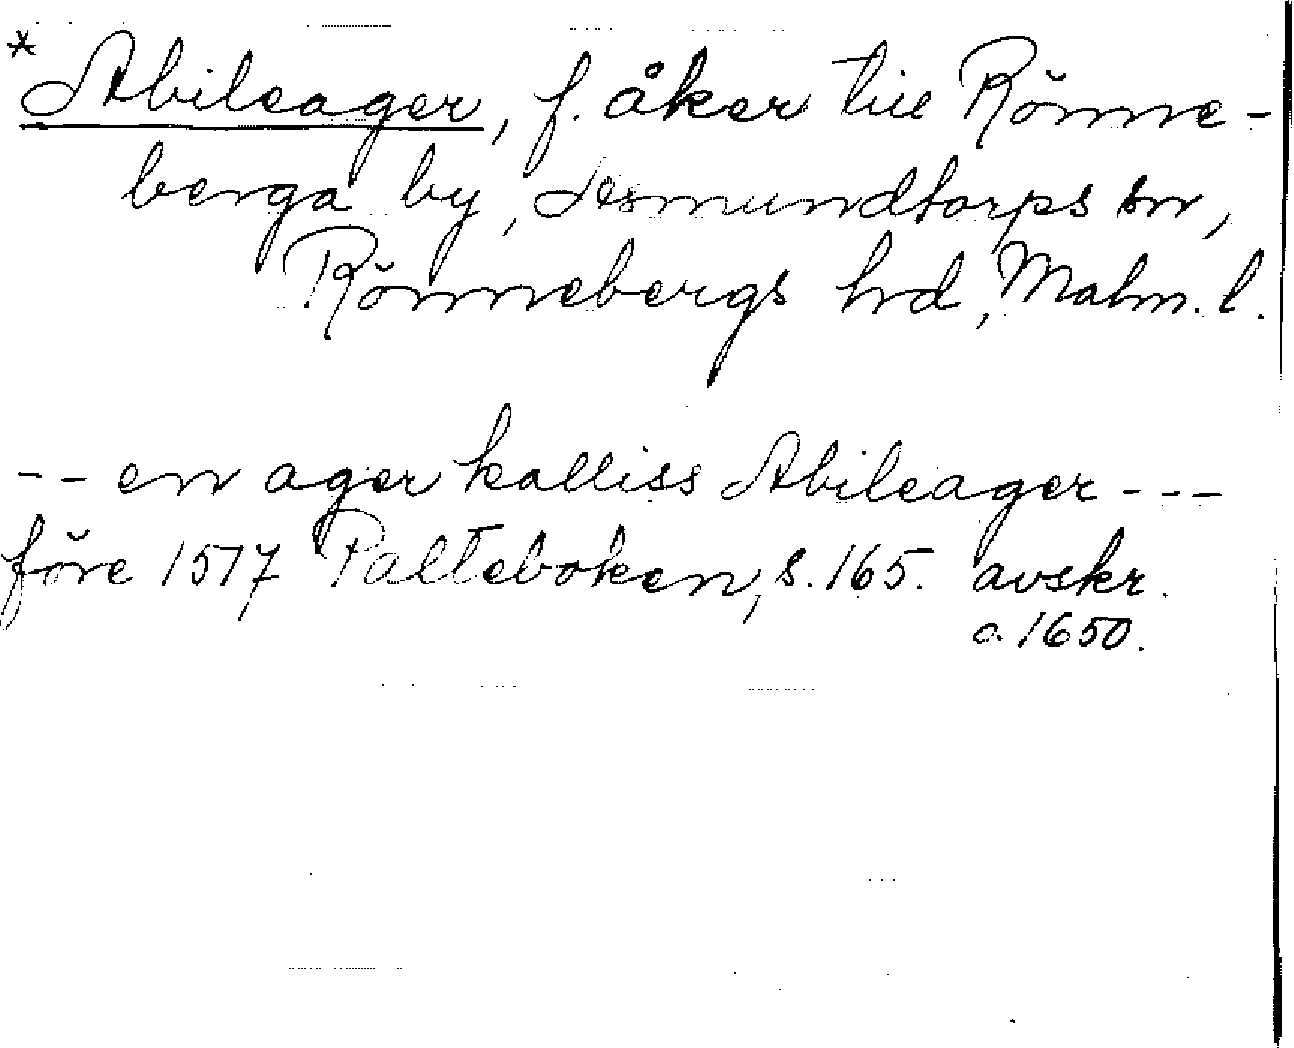 * Abileager, f. åker till Rönne-
berga by, Asmundtorps sn,
Rönnebergs hd, Malm. l.
-- en ager kalliss Abileager ---
före 1517 Palteboken, s. 165. avskr.
o. 1650.